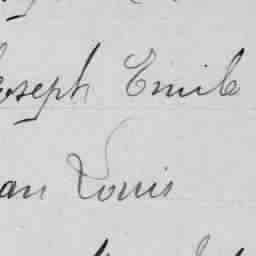 oseph Emile
an Louis